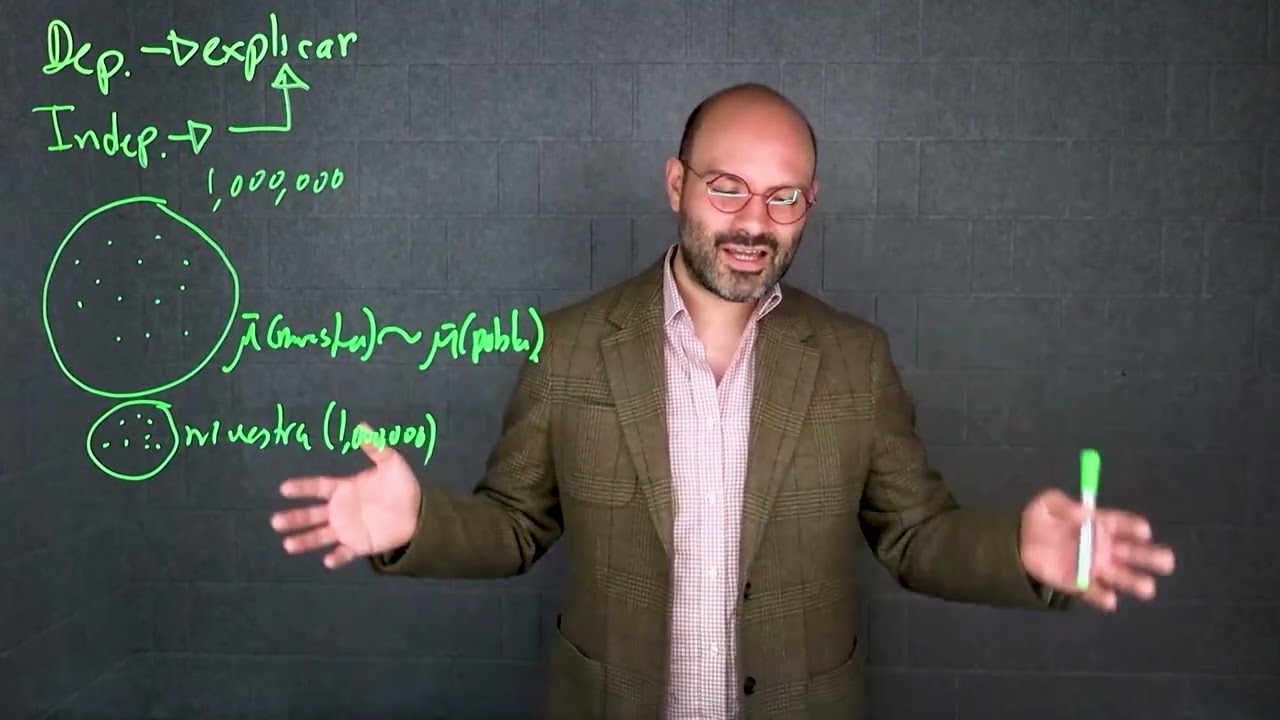 Dep. → explicar
Indep. →
1,000,000
μ̄(muestra) ~ μ̄(pobla)
muestra (1,000,000)